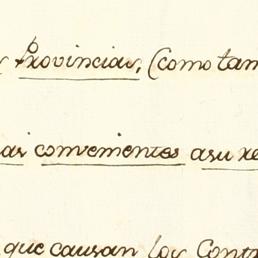 Provincias, (como tam
as convenientes asu re
que causan los Cont